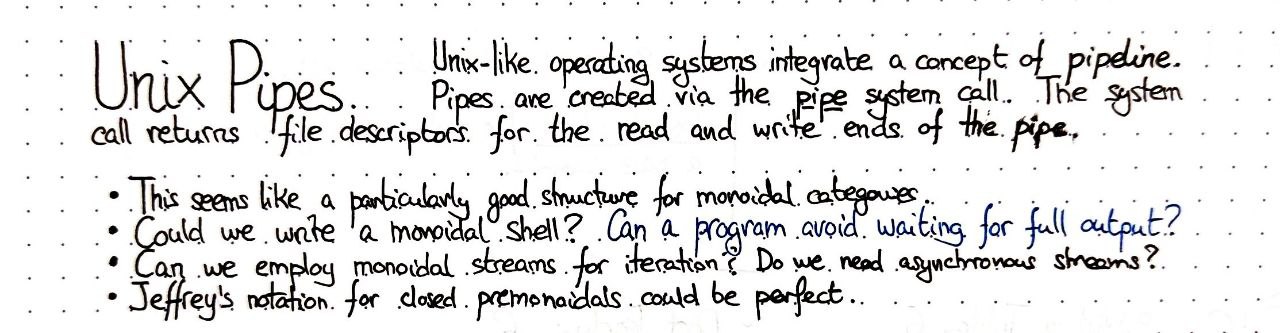 Unix Pipes. Unix-like operating systems integrate a concept of pipeline.
Pipes are created via the pipe system call. The system
call returns file descriptors for the read and write ends of the pipe.
• This seems like a particularly good structure for monoidal categories.
• Could we write a monoidal shell? Can a program avoid waiting for full output?
• Can we employ monoidal streams for iteration? Do we need asynchronous streams?
• Jeffrey's notation for closed premonoidals could be perfect.